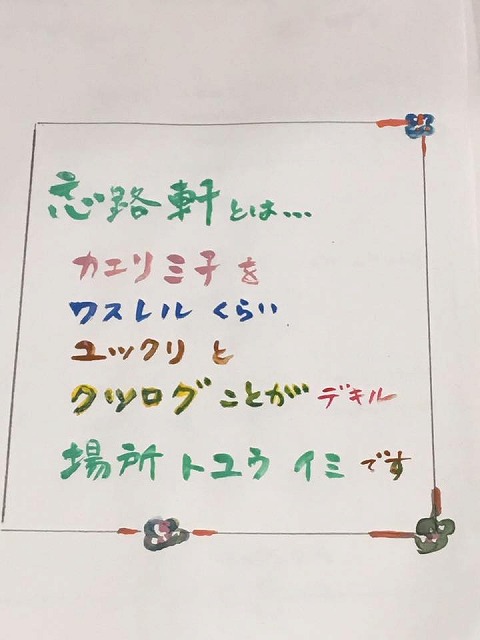 忘路軒とは...
カエリミチを
ワスレルくらい
ユックリと
クツログことがデキル
場所トユウイミです